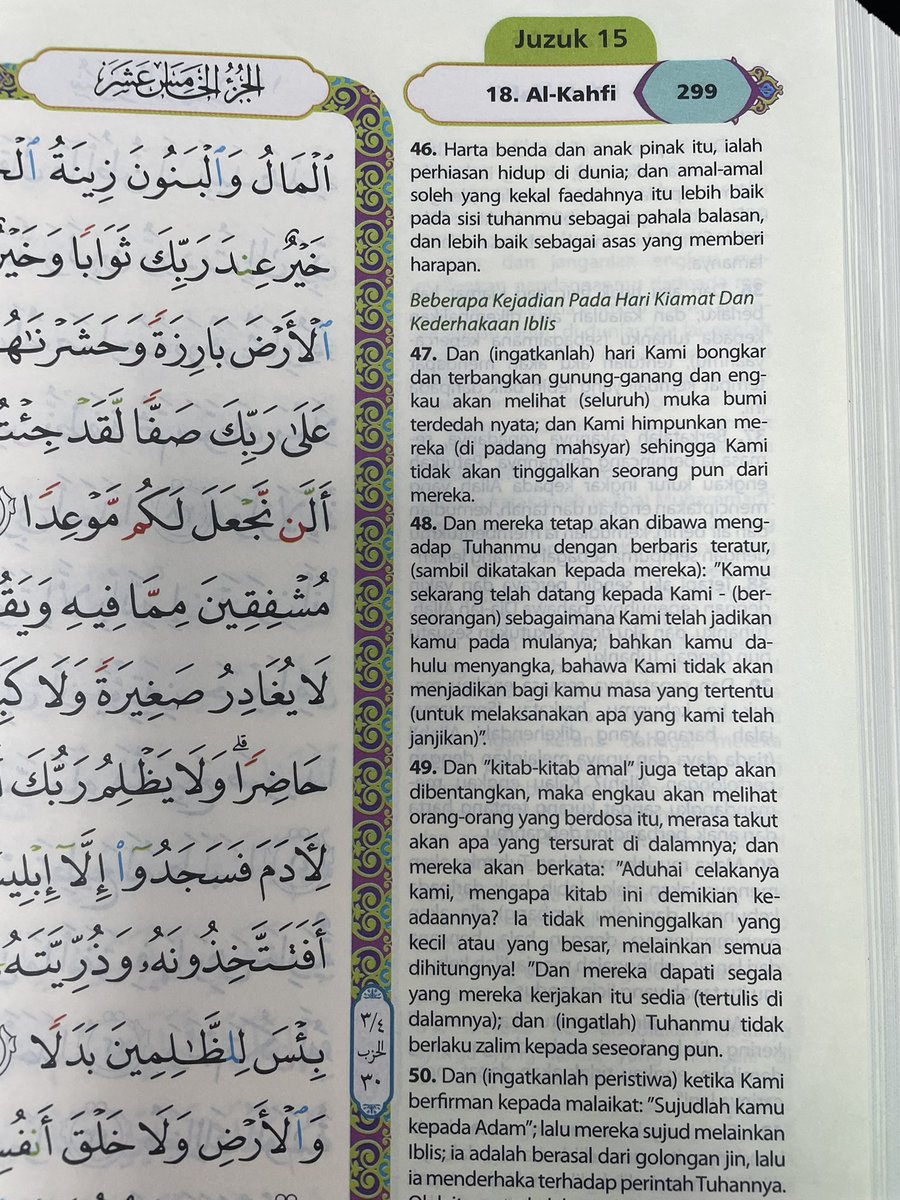 Juzuk 15
18. Al-Kahfi
299
46. Harta benda dan anak pinak itu, ialah
perhiasan hidup di dunia; dan amal-amal
soleh yang kekal faedahnya itu lebih baik
pada sisi tuhanmu sebagai pahala balasan,
dan lebih baik sebagai asas yang memberi
harapan.
Beberapa Kejadian Pada Hari Kiamat Dan
Kederhakaan Iblis
47. Dan (ingatkanlah) hari Kami bongkar
dan terbangkan gunung-ganang dan eng-
kau akan melihat (seluruh) muka bumi
terdedah nyata; dan Kami himpunkan me-
reka (di padang mahsyar) sehingga Kami
tidak akan tinggalkan seorang pun dari
mereka.
48. Dan mereka tetap akan dibawa meng-
adap Tuhanmu dengan berbaris teratur,
(sambil dikatakan kepada mereka): "Kamu
sekarang telah datang kepada Kami - (ber-
seorangan) sebagaimana Kami telah jadikan
kamu pada mulanya; bahkan kamu da-
hulu menyangka, bahawa Kami tidak akan
menjadikan bagi kamu masa yang tertentu
(untuk melaksanakan apa yang kami telah
janjikan)".
49. Dan "kitab-kitab amal" juga tetap akan
dibentangkan, maka engkau akan melihat
orang-orang yang berdosa itu, merasa takut
akan apa yang tersurat di dalamnya; dan
mereka akan berkata: "Aduhai celakanya
kami, mengapa kitab ini demikian ke-
adaannya? Ia tidak meninggalkan yang
kecil atau yang besar, melainkan semua
dihitungnya! "Dan mereka dapati segala
yang mereka kerjakan itu sedia (tertulis di
dalamnya); dan (ingatlah) Tuhanmu tidak
berlaku zalim kepada seseorang pun.
50. Dan (ingatkanlah peristiwa) ketika Kami
berfirman kepada malaikat: "Sujudlah kamu
kepada Adam"; lalu mereka sujud melainkan
Iblis; ia adalah berasal dari golongan jin, lalu
ia menderhaka terhadap perintah Tuhannya.
الجزء الخامس عشر
ٱلْمَالُ وَٱلْبَنُونَ زِينَةُ
خَيْرٌ عِندَ رَبِّكَ ثَوَابًا وَخَيْرٌ
ٱلْأَرْضَ بَارِزَةً وَحَشَرْنَٰهُ
عَلَىٰ رَبِّكَ صَفًّا لَّقَدْ جِئْتُ
أَلَّن نَّجْعَلَ لَكُم مَّوْعِدًا
مُشْفِقِينَ مِمَّا فِيهِ وَيَقُ
لَا يُغَادِرُ صَغِيرَةً وَلَا كَبِ
حَاضِرًا ۗ وَلَا يَظْلِمُ رَبُّكَ
لِـَٔادَمَ فَسَجَدُوٓا۟ إِلَّآ إِبْلِي
أَفَتَتَّخِذُونَهُۥ وَذُرِّيَّتَهُ
بِئْسَ لِلظَّٰلِمِينَ بَدَلًا
وَٱلْأَرْضِ وَلَا خَلْقَ أَنفُسِ
٣/٤
الحزب
٣٠